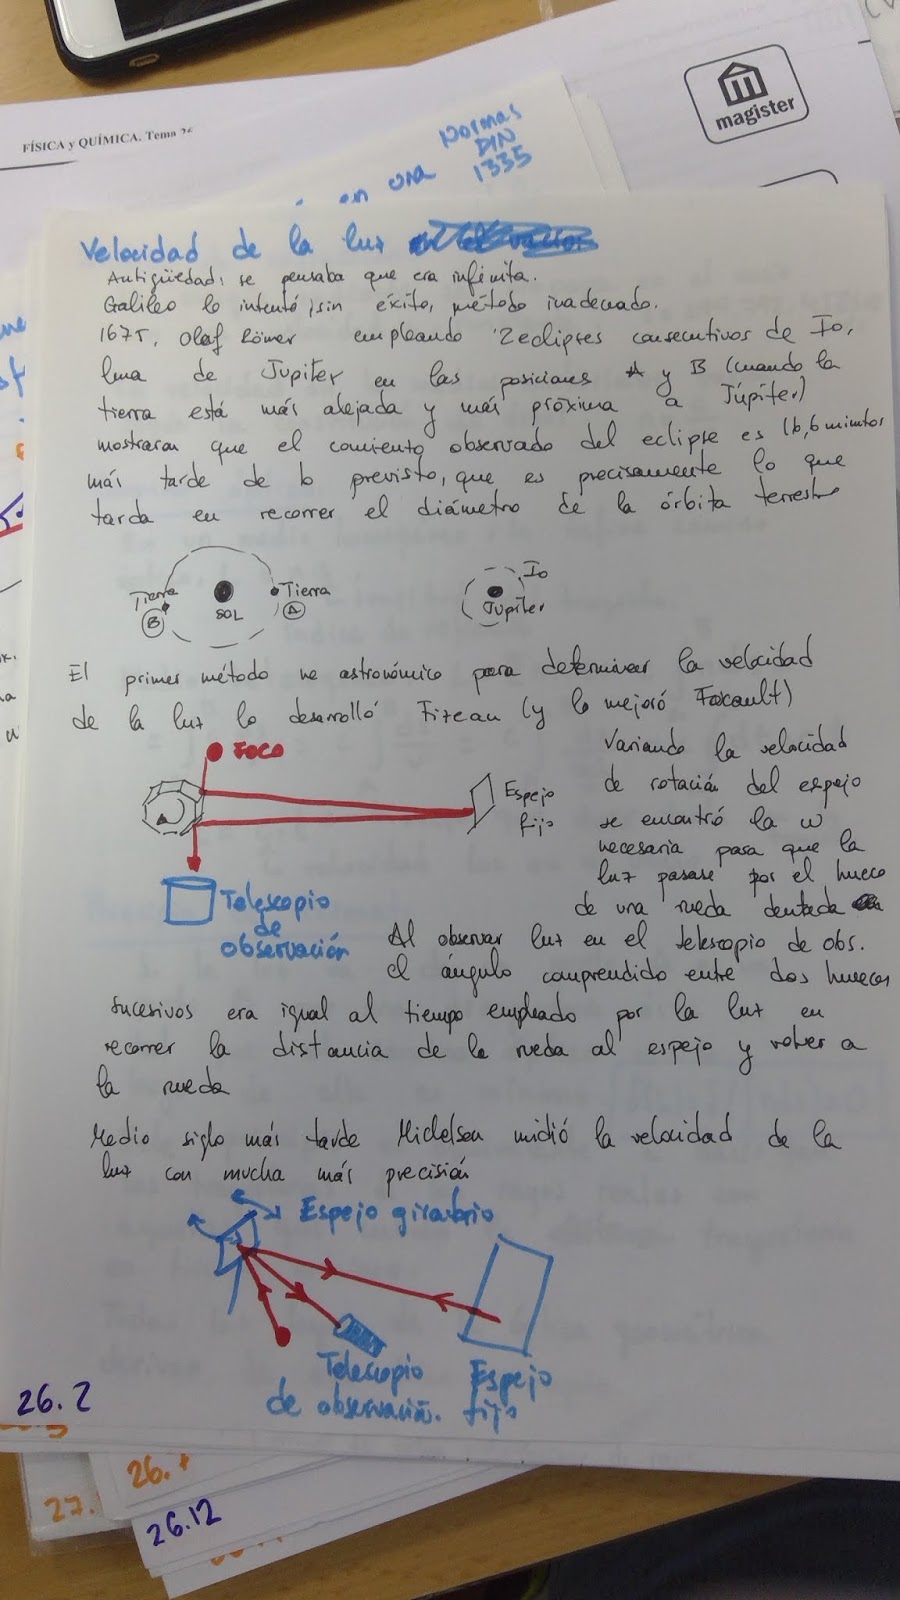 magister
FÍSICA y QUÍMICA. Tema 26
Normas
DIN
1335
en una
Velocidad de la luz
Antigüedad: se pensaba que era infinita.
Galileo lo intentó sin éxito, método inadecuado.
1675, Olaf Römer empleando 2 eclipses consecutivos de Io,
luna de Jupiter en las posiciones A y B (cuando la
tierra está más alejada y más próxima a Júpiter)
mostraron que el comiento observado del eclipse es 16,6 minutos
más tarde de lo previsto, que es precisamente lo que
tarda en recorrer el diámetro de la órbita terrestre
Tierra
B
SOL
Tierra
A
Io
Jupiter
El primer método no astronómico para determinar la velocidad
de la luz lo desarrolló Fizeau (y lo mejoró Focault)
FOCO
Espejo
fijo
Telescopio
de
observación
Variando la velocidad
de rotación del espejo
se encontró la w
necesaria para que la
luz pasase por el hueco
de una rueda dentada
Al observar luz en el telescopio de obs.
el ángulo comprendido entre dos huecos
sucesivos era igual al tiempo empleado por la luz en
recorrer la distancia de la rueda al espejo y volver a
la rueda
Medio siglo más tarde Michelson midió la velocidad de la
luz con mucha más precisión
Espejo giratorio
Telescopio
de observación.
Espejo
fijo
26.2
27.
26.12